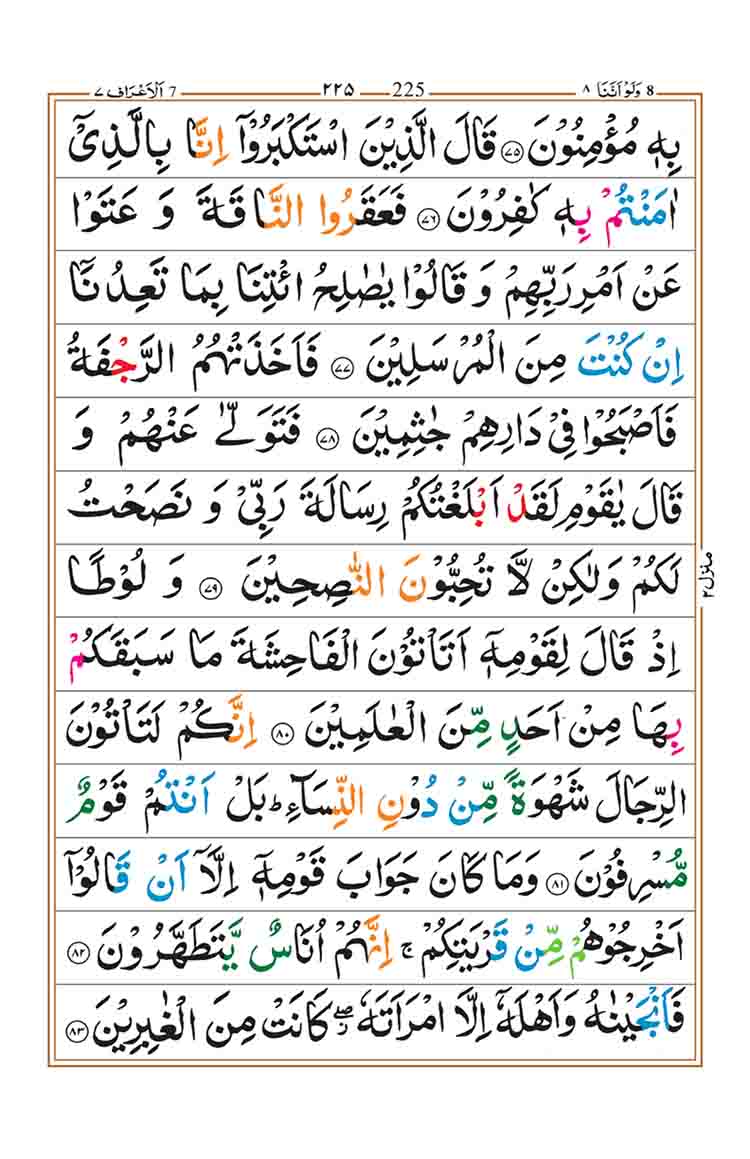 8 وَلَوْ اَنَّنَا ۸ 225 ۲۲۵ 7 اَلْاَعْرَاف ۷
بِهٖ مُؤْمِنُوْنَ ۝۷۵ قَالَ الَّذِيْنَ اسْتَكْبَرُوْۤا اِنَّا بِالَّذِيْۤ
اٰمَنْتُمْ بِهٖ كٰفِرُوْنَ ۝۷۶ فَعَقَرُوا النَّاقَةَ وَ عَتَوْا
عَنْ اَمْرِ رَبِّهِمْ وَ قَالُوْا يٰصٰلِحُ ائْتِنَا بِمَا تَعِدُنَاۤ
اِنْ كُنْتَ مِنَ الْمُرْسَلِيْنَ ۝۷۷ فَاَخَذَتْهُمُ الرَّجْفَةُ
فَاَصْبَحُوْا فِيْ دَارِهِمْ جٰثِمِيْنَ ۝۷۸ فَتَوَلّٰى عَنْهُمْ وَ
قَالَ يٰقَوْمِ لَقَدْ اَبْلَغْتُكُمْ رِسَالَةَ رَبِّيْ وَ نَصَحْتُ
لَكُمْ وَلٰكِنْ لَّا تُحِبُّوْنَ النّٰصِحِيْنَ ۝۷۹ وَ لُوْطًا
اِذْ قَالَ لِقَوْمِهٖۤ اَتَاْتُوْنَ الْفَاحِشَةَ مَا سَبَقَكُمْ
بِهَا مِنْ اَحَدٍ مِّنَ الْعٰلَمِيْنَ ۝۸۰ اِنَّكُمْ لَتَاْتُوْنَ
الرِّجَالَ شَهْوَةً مِّنْ دُوْنِ النِّسَآءِ ؕ بَلْ اَنْتُمْ قَوْمٌ
مُّسْرِفُوْنَ ۝۸۱ وَمَا كَانَ جَوَابَ قَوْمِهٖۤ اِلَّاۤ اَنْ قَالُوْۤا
اَخْرِجُوْهُمْ مِّنْ قَرْيَتِكُمْ ۚ اِنَّهُمْ اُنَاسٌ يَّتَطَهَّرُوْنَ ۝۸۲
فَاَنْجَيْنٰهُ وَاَهْلَهٗۤ اِلَّا امْرَاَتَهٗ ۖ كَانَتْ مِنَ الْغٰبِرِيْنَ ۝۸۳
منزل ۲